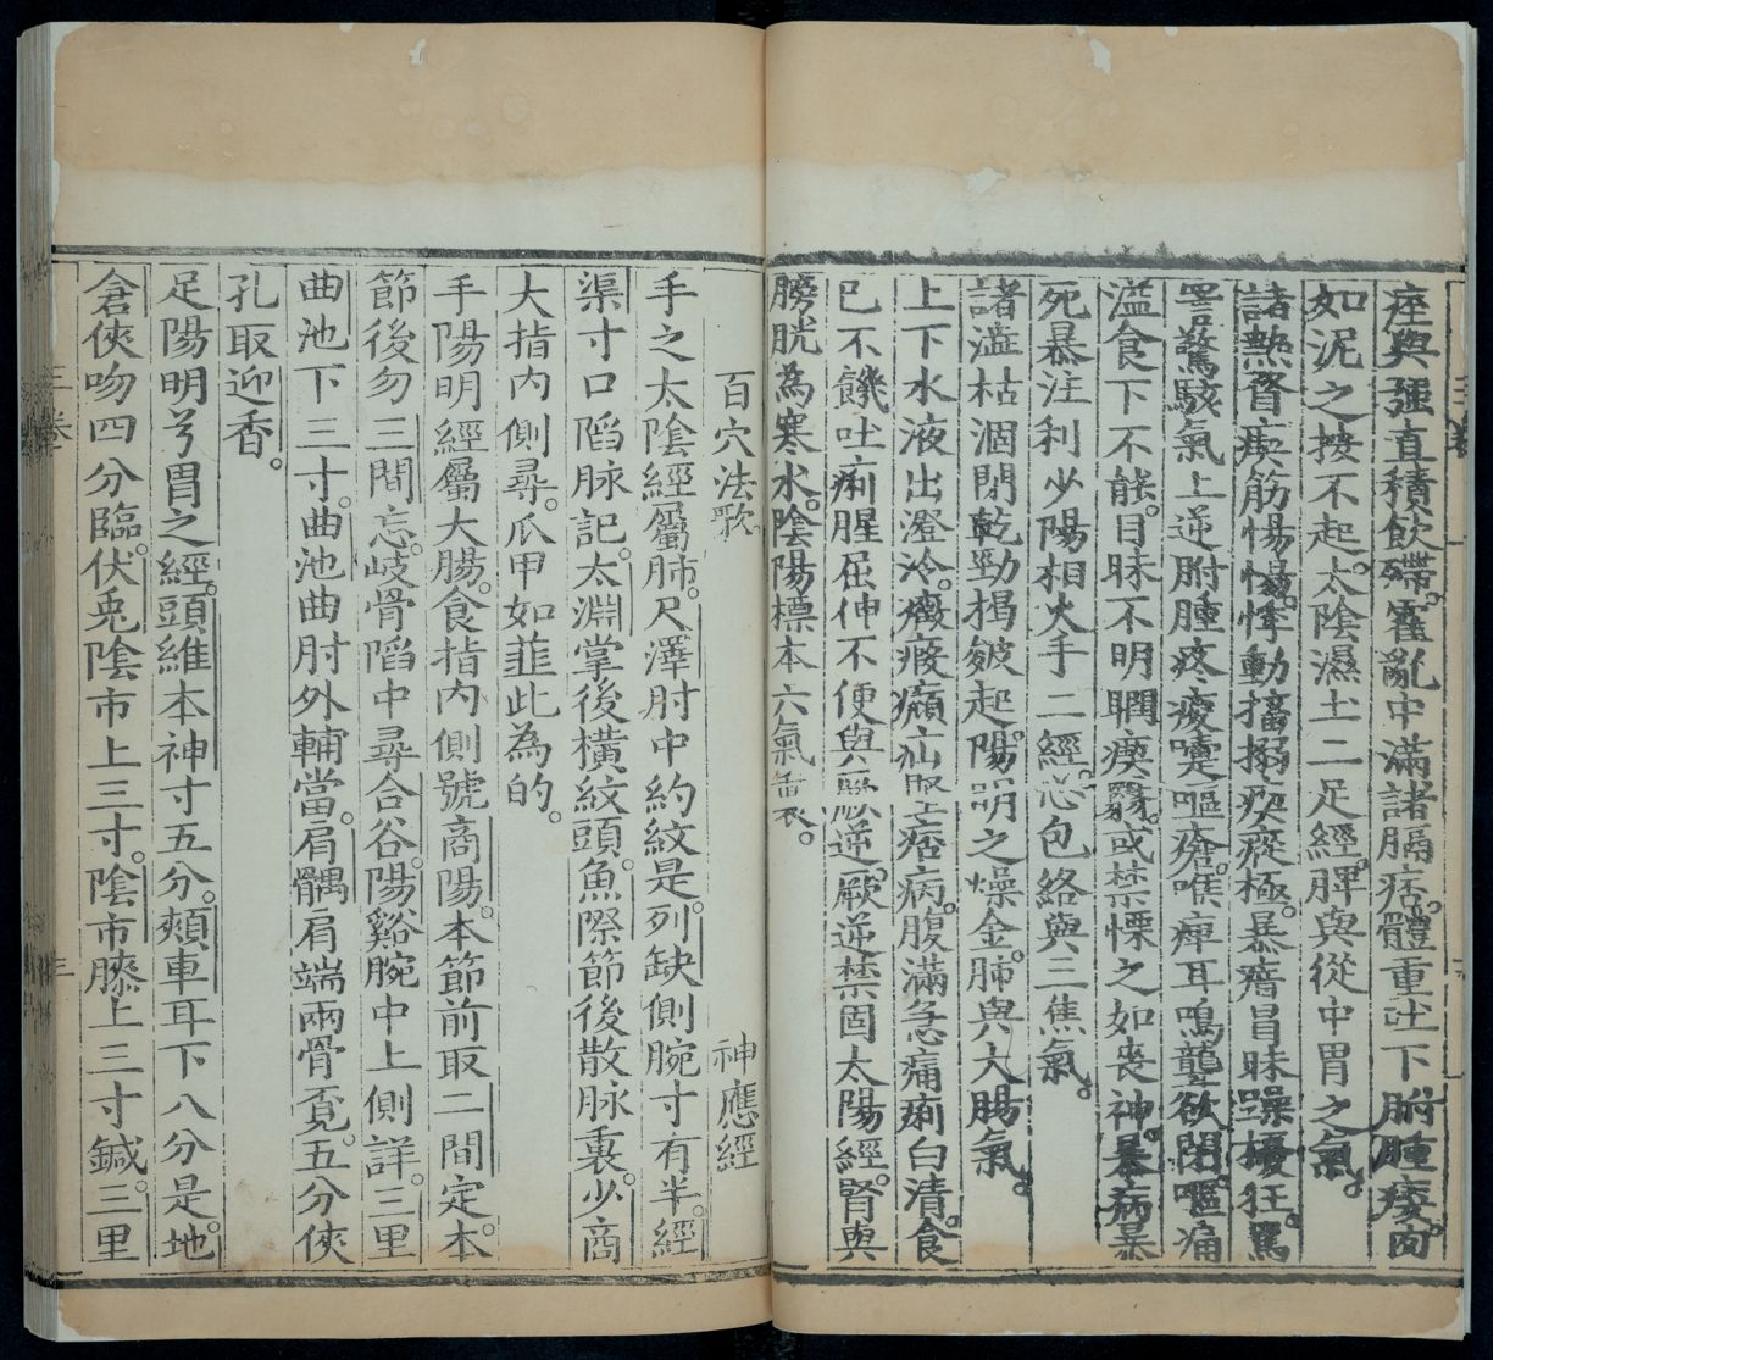 痓與強直積飲殢。霍亂中滿諸膈痞。體重吐下胕腫痿。肉
如泥之按不起。太陰濕土二足經。脾與從中胃之氣。
諸熱瞀瘛筋惕惕。悸動搐搦瘛瘲極。暴瘖冒昧躁擾狂。罵
詈驚駭氣上逆胕腫疼痠嚏嘔瘡。喉痺耳鳴聾欲閉。嘔痛
溢食下不能。目昧不明瞤瘛翳。或禁慄之如喪神。暴病暴
死暴注利少陽相火手二經。心包絡與三焦氣。
諸澁枯涸閉乾勁揭皴起。陽明之燥金。肺與大腸氣。
上下水液出澄冷。癥瘕癲疝堅痞病。腹滿急痛痢白清。食
已不饑吐痢腥屈伸不便與厥逆。厥逆禁固太陽經。腎與
膀胱為寒水。陰陽標本六氣
百穴法歌。 神應經
手之太陰經屬肺。尺澤肘中約紋是。列缺側腕寸有半。經
渠寸口陷脉記。太淵掌後橫紋頭。魚際節後散脉裏。少商
大指內側尋。爪甲如韮此為的。
手陽明經屬大腸。食指內側號商陽。本節前取二間定。本
節後勿三間忘。岐骨陷中尋合谷。陽谿腕中上側詳。三里
曲池下三寸。曲池曲肘外輔當。肩髃肩端兩骨覔。五分俠
孔取迎香。
足陽明兮胃之經。頭維本神寸五分。頰車耳下八分是。地
倉俠吻四分臨。伏兎陰市上三寸。陰市膝上三寸鍼。三里